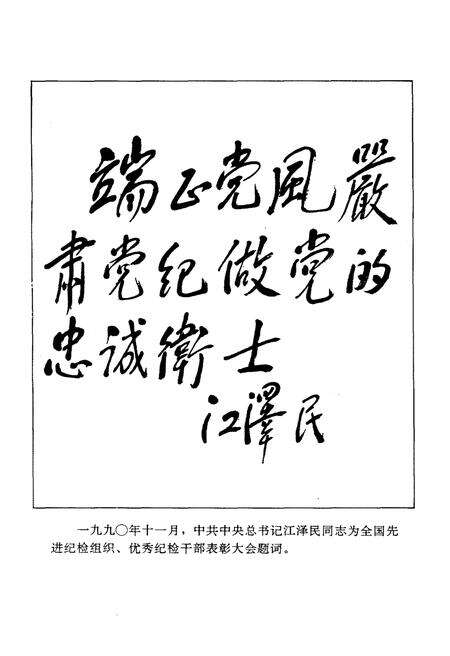 端正党风嚴
肅党纪做党的
忠诚衛士
江澤民
一九九〇年十一月，中共中央总书记江泽民同志为全国先
进纪检组织、优秀纪检干部表彰大会题词。